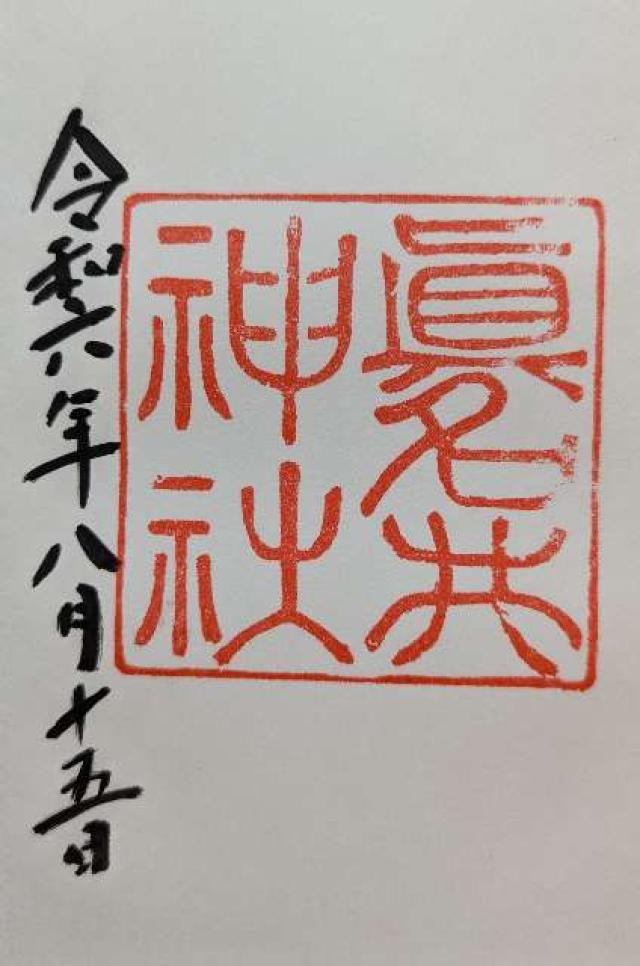 眞名井
神社
令和六年八月十五日